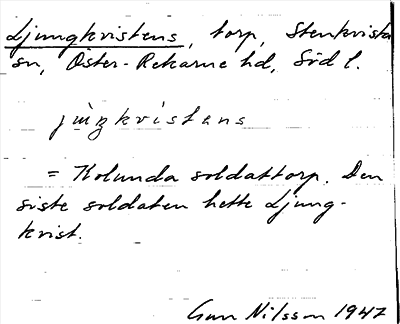 Ljungkvistens, torp, Stenkvista
sn, Öster-Rekarne hd, Söd l.
jùŋkvistens
= Kolunda soldattorp. Den
siste soldaten hette Ljung-
kvist.
Gun Nilsson 1947